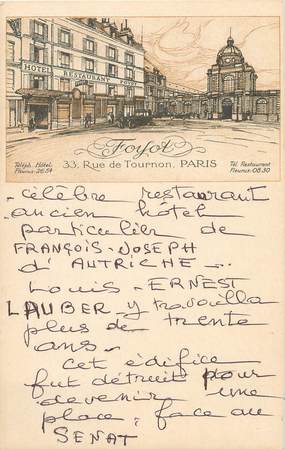 HOTEL RESTAURANT FOYOT
Foyot
33, Rue de Tournon, PARIS
Téléph. Hôtel
Fleurus: 26.54
Tél. Restaurant
Fleurus: 08.30
- célèbre restaurant
- ancien hôtel
particulier de
FRANÇOIS - JOSEPH
d'AUTRICHE -
Louis - ERNEST
LAUBER - y travailla
plus de trente
ans -
Cet édifice
fut détruit pour
devenir une
place, face au
SENAT